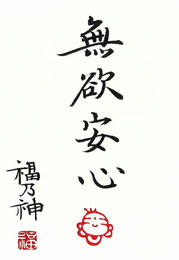 無欲安心
福乃神